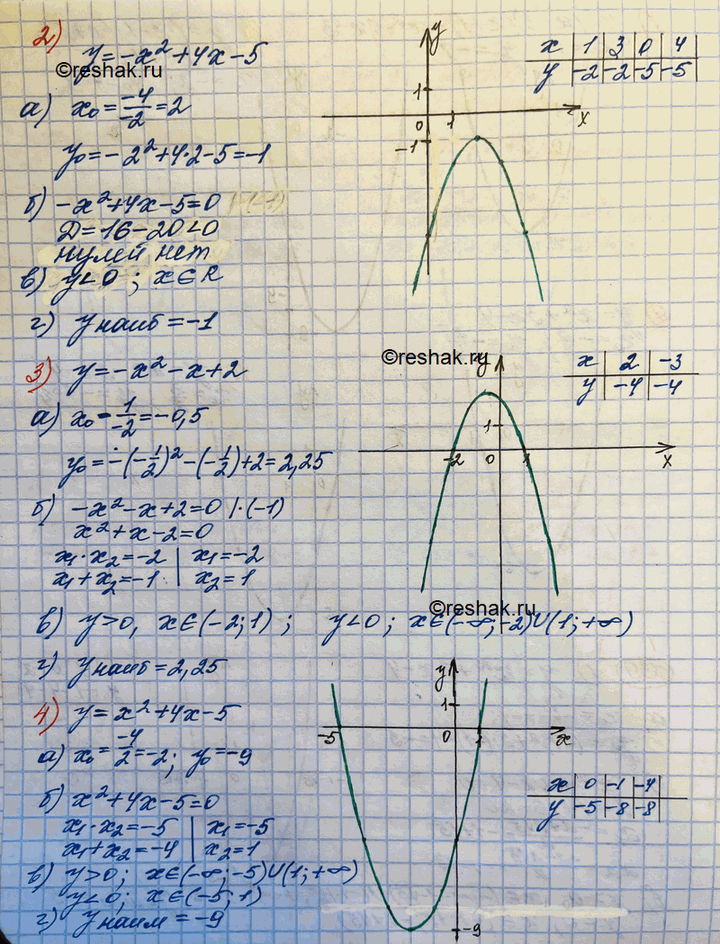 2)
y = -x² + 4x - 5
©reshak.ru
а) x₀ = -4/-2 = 2
y₀ = -2² + 4·2 - 5 = -1
б) -x² + 4x - 5 = 0 | ·(-1)
Д = 16 - 20 < 0
нулей нет
в) y < 0 ; x ∈ R
г) y наиб = -1
y
1
0 1 x
-1
x | 1 | 3 | 0 | 4
y | -2 | -2 | -5 | -5
3) y = -x² - x + 2
а) x₀ = 1/-2 = -0,5
y₀ = -(-1/2)² - (-1/2) + 2 = 2,25
б) -x² - x + 2 = 0 | ·(-1)
x² + x - 2 = 0
x₁ · x₂ = -2 | x₁ = -2
x₁ + x₂ = -1 | x₂ = 1
©reshak.ru
y
1
-2 0 1 x
x | 2 | -3
y | -4 | -4
©reshak.ru
в) y > 0, x ∈ (-2; 1) ; y < 0 ; x ∈ (-∞; -2) U (1; +∞)
г) y наиб = 2,25
4) y = x² + 4x - 5
а) x₀ = -4/2 = -2; y₀ = -9
б) x² + 4x - 5 = 0
x₁ · x₂ = -5 | x₁ = -5
x₁ + x₂ = -4 | x₂ = 1
в) y > 0; x ∈ (-∞; -5) U (1; +∞)
y < 0; x ∈ (-5; 1)
г) y наим = -9
y
1
-5 0 1 x
-9
x | 0 | -1 | -4
y | -5 | -8 | -8